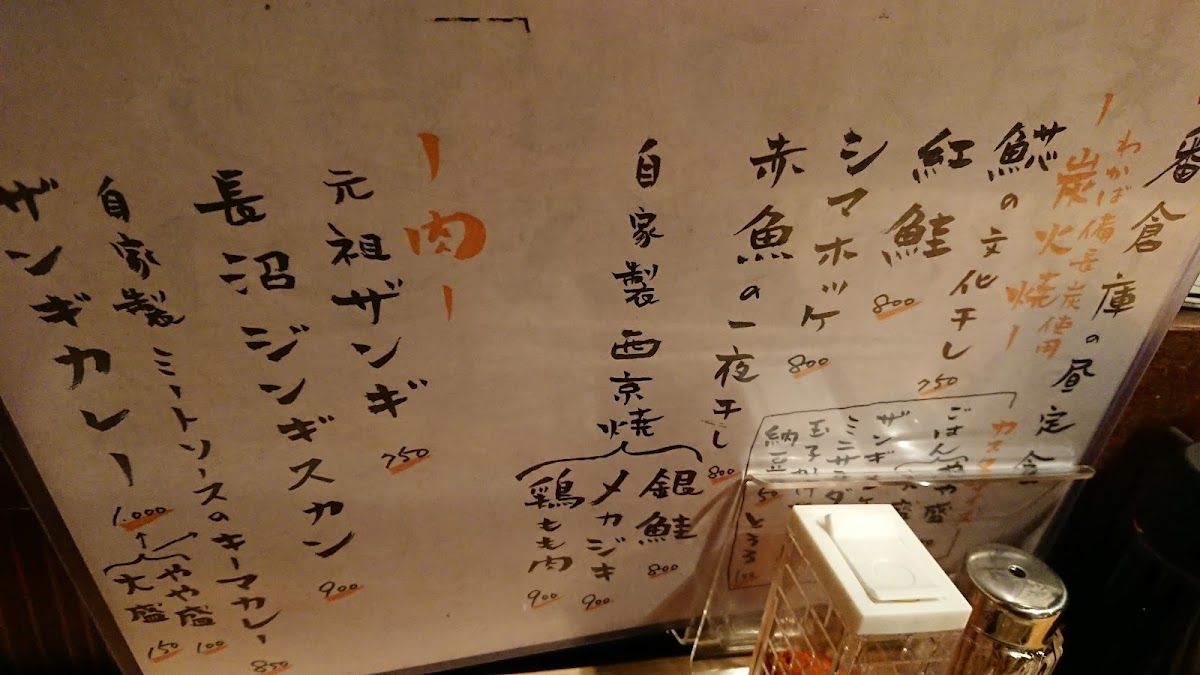 番倉庫の昼定食
わかば備長炭使用
ー炭火焼ー
の文化干し 750
紅鮭 800
シマホッケ 800
赤魚の一夜干し 800
自家製西京焼
銀鮭 800
メカジキ 900
鶏もも肉 900
ー肉ー
元祖ザンギ 750
長沼ジンギスカン 900
自家製ミートソースのキーマカレー 850
ザンギカレー 1.000
やや盛 100
大盛 150
カスタマイズ
ごはんやや盛
ザンギ
ミニサラダ
玉子かけ
納豆 50
とろろ